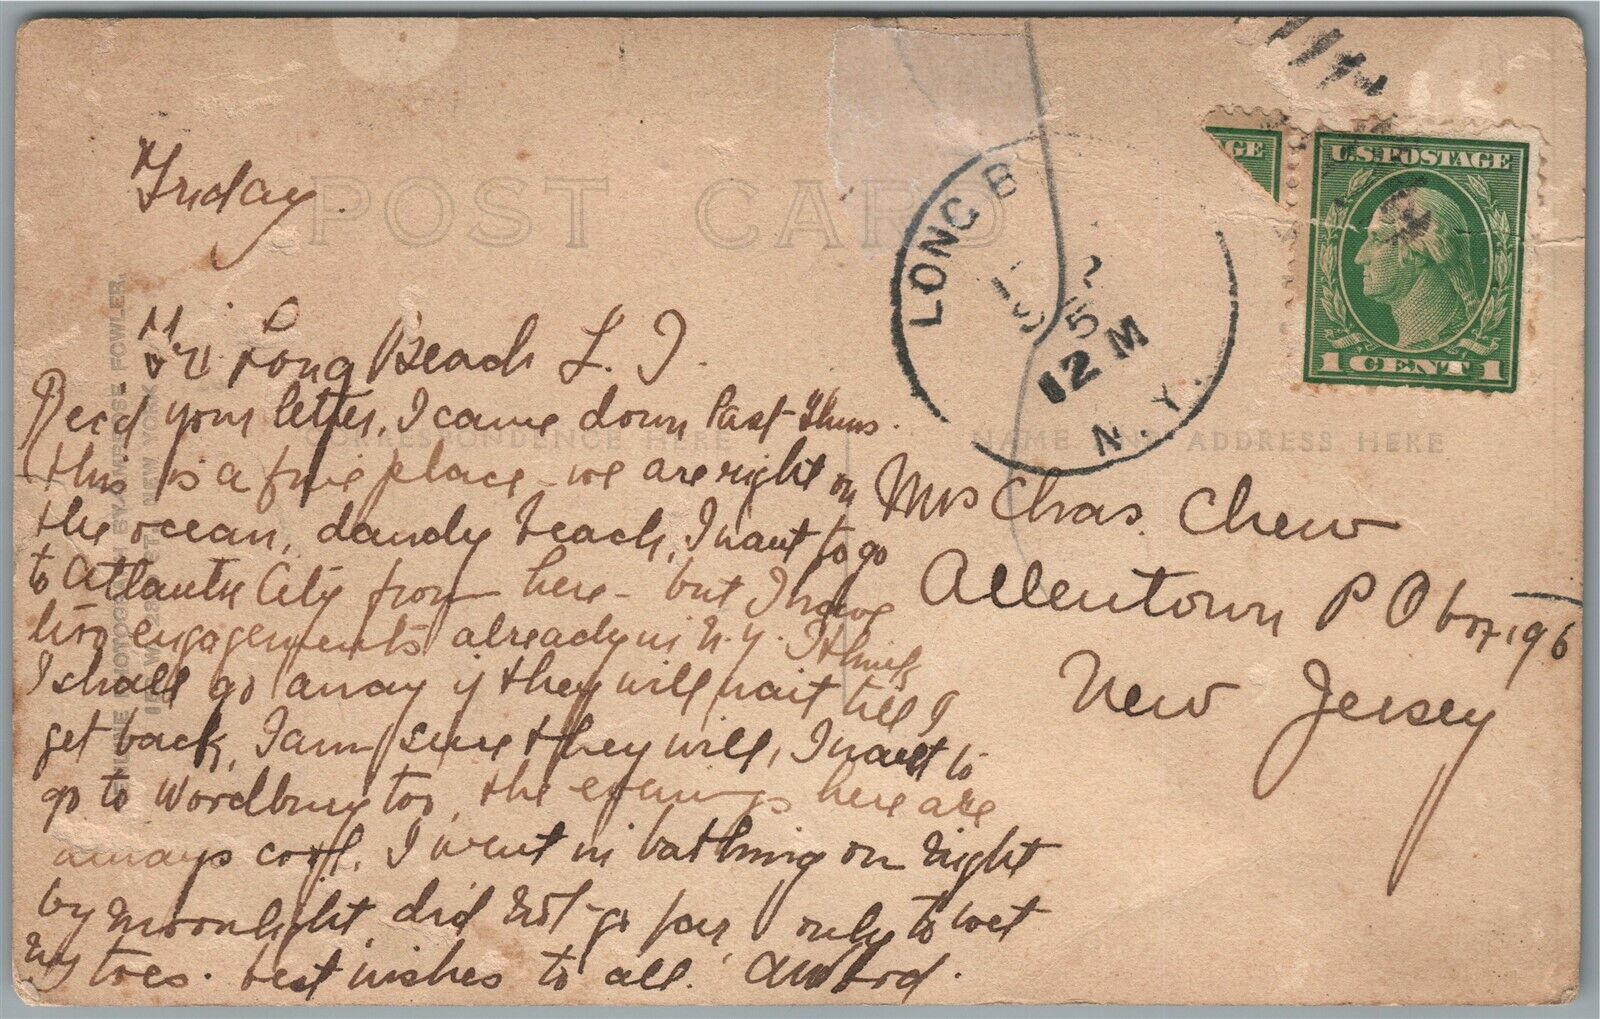 Friday.
POST CARD
LONG B
12 M
N. Y.
U.S. POSTAGE
1 CENT 1
GE
Long Beach L. I.
Rec'd your letter, I came down last Thurs.
CORRESPONDENCE HERE
NAME AND ADDRESS HERE
this is a fine place - we are right on
the ocean, dandy beach, I want to go
to Atlantic City from here - but I have
two engagements already in N.Y. I think
I shall go away if they will wait till I
get back, I am sure they will, I want to
go to Woodbury too, the evenings here are
always cool. I went in bathing one night
by moonlight, did not go far only to wet
my toes. best wishes to all.
Mrs Chas. Chew
Allentown P O box 196
New Jersey